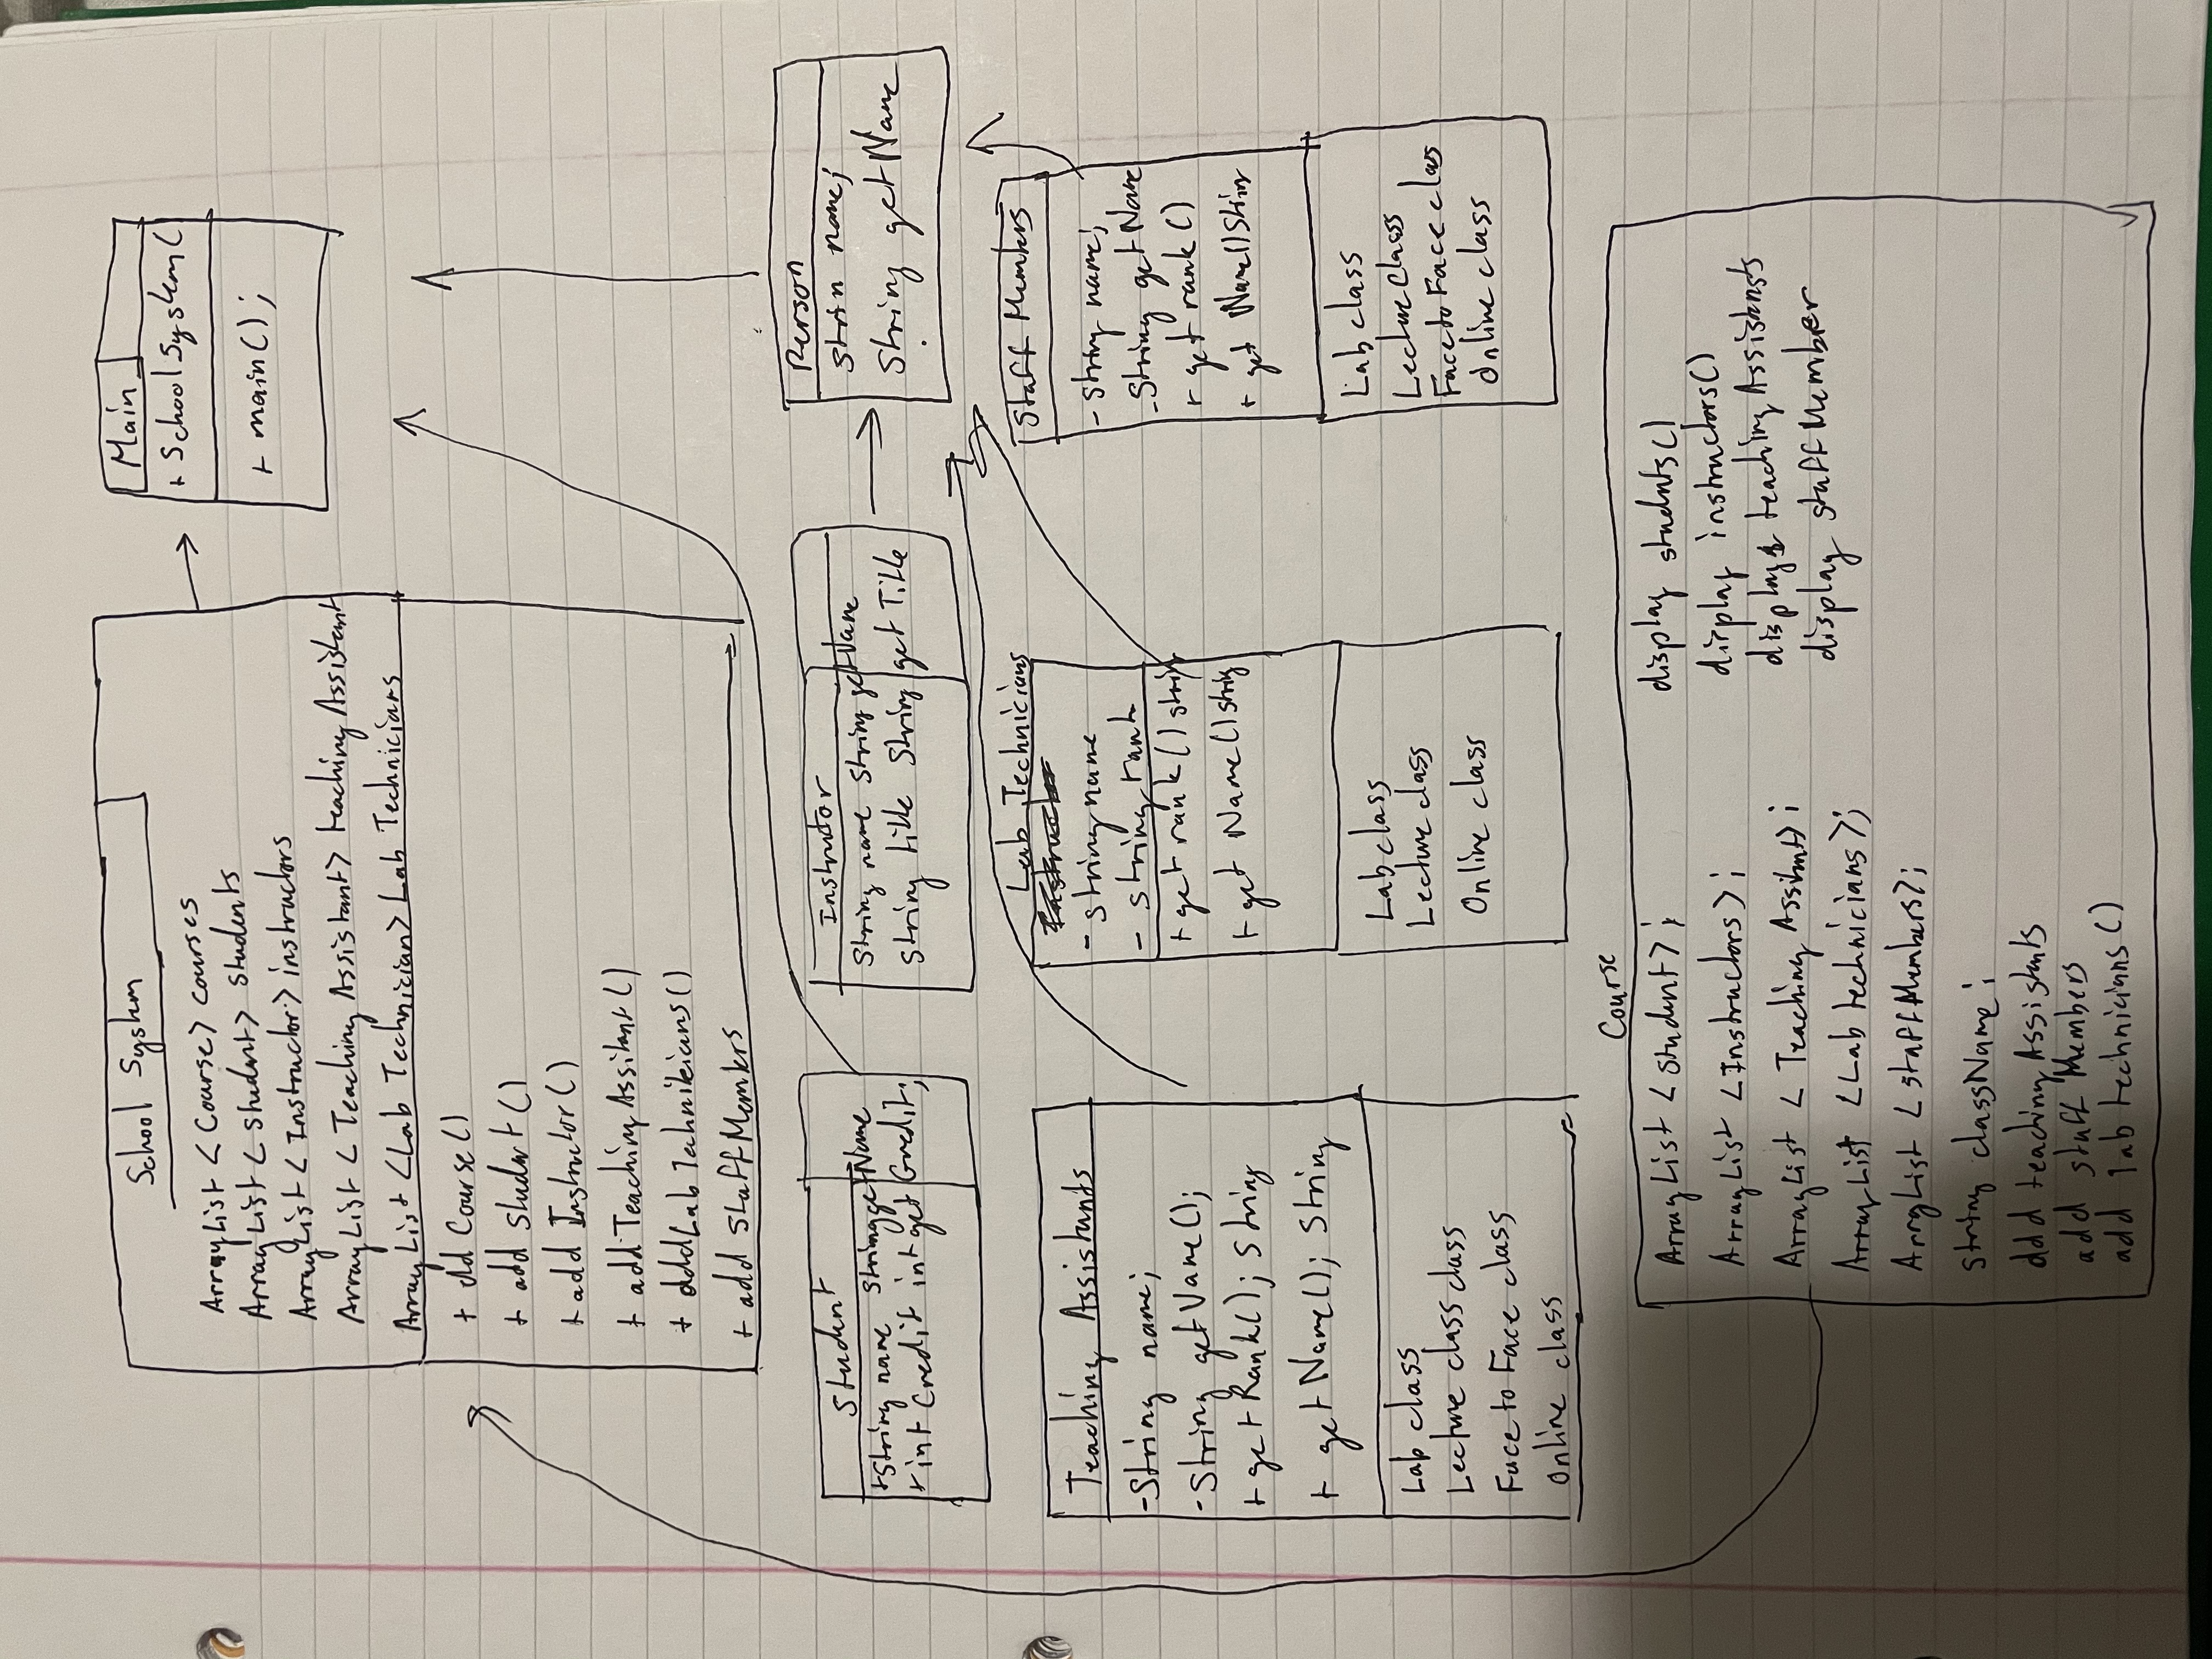 School System
ArrayList < Course > courses
ArrayList < Student > students
ArrayList < Instructor > instructors
ArrayList < Teaching Assistant > teaching Assistant
ArrayList < Lab Technician > Lab Technicians
+ add Course ()
+ add student ()
+ add Instructor ()
+ add Teaching Assitant ()
+ add Lab Technikians ()
+ add Staff Members
Main
+ School System (
+ main ();
Student
+ String name String get Name
+ int Credit int get Credit;
Instructor
String name String get Name
String title String get Title
Person
Strin name;
String get Name
Teaching Assistants
- String name;
- String get Name ();
+ get Rank (); String
+ get Name (); String
Lab class
Lecture class class
Face to Face class
Online class
Lab Technicians
- String name
- String rank
+ get rank () string
+ get Name () string
Lab class
Lecture class
Online class
Staff Members
- String name;
- String get Name
+ get rank ()
+ get Name () String
Lab class
Lecture Classs
Face to Face class
Online class
Course
ArrayList < Student > ;
ArrayList < Instructors > ;
ArrayList < Teaching Assitant > ;
ArrayList < Lab technicians > ;
ArrayList < staff Members > ;
string className ;
add teaching Assistants
add staff Members
add lab technicians ()
display students ()
display instructors ()
display teaching Assistants
display staff Member